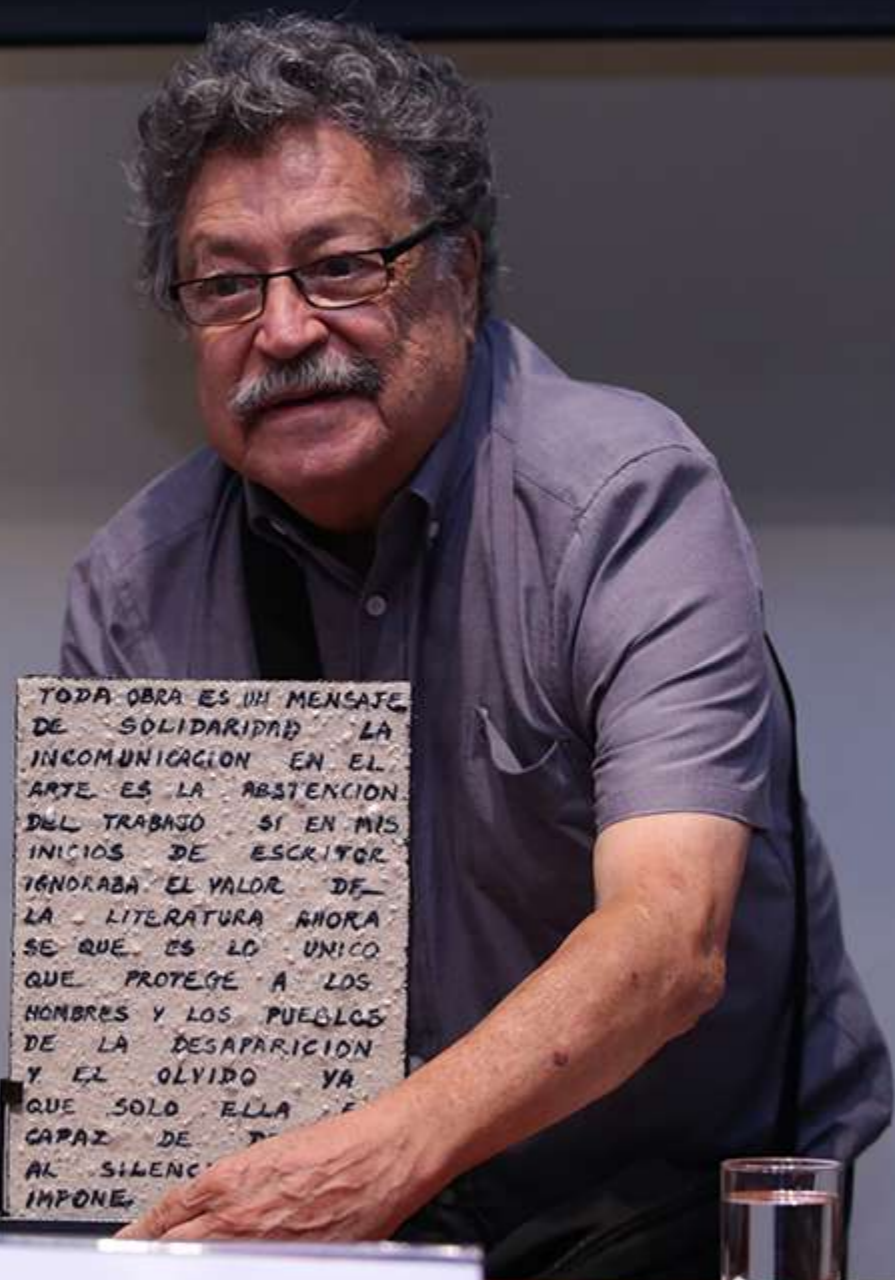 TODA OBRA ES UN MENSAJE
DE SOLIDARIDAD LA
INCOMUNICACION EN EL
ARTE ES LA ABSTENCION
DEL TRABAJO SI EN MIS
INICIOS DE ESCRITOR
IGNORABA EL VALOR DE
LA LITERATURA AHORA
SE QUE ES LO UNICO
QUE PROTEGE A LOS
HOMBRES Y LOS PUEBLOS
DE LA DESAPARICION
Y EL OLVIDO YA
QUE SOLO ELLA
CAPAZ DE
AL
IMPONE.